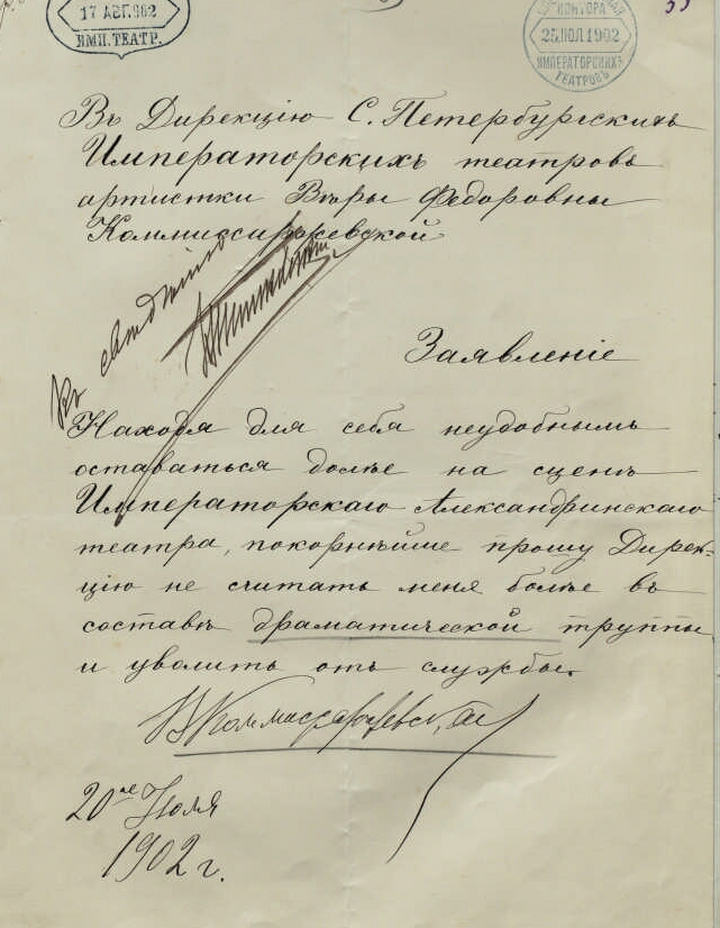 17 АВГ.902
ИМП. ТЕАТР.
КОНТОРА
25.ІЮЛ.1902
ИМПЕРАТОРСКИХЪ
ТЕАТРОВЪ
Въ Дирекцію С. Петербургскихъ
Императорскихъ театровъ
артистки Вѣры Федоровны
Коммиссаржевской
Къ свѣдѣнію
Заявленіе
Находя для себя неудобнымъ
оставаться долѣе на сценѣ
Императорскаго Александринскаго
театра, покорнѣйше прошу Дирек-
цію не считать меня болѣе въ
составѣ драматической труппы
и уволить отъ службы.
В Коммиссаржевская
20го Іюля
1902 г.